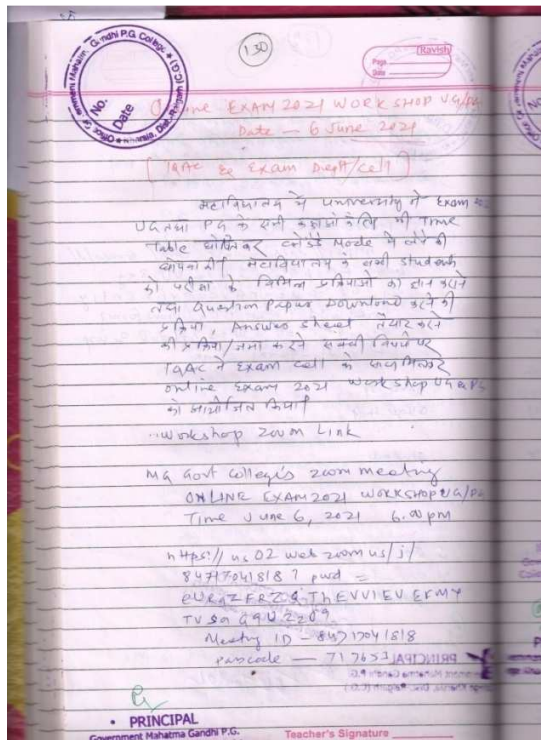 130
Ravish
Page
Date
Government Mahatma Gandhi P.G. College
No.
Date
Online EXAM 2021 WORKSHOP UG/PG
Date — 6 June 2021
[IQAC & Exam Deptt/cell]
महाविद्यालय में university ने Exam
UG तथा PG के सभी कक्षाओं के लिए भी Time
Table घोषित कर Mode में लेने की
घोषणा की। महाविद्यालय ने सभी student
को परीक्षा के विभिन्न प्रक्रियाओं का ज्ञान कराने
तथा Question Paper Download करने की
प्रक्रिया, Answer sheet तैयार करने
की प्रक्रिया/जमा करने संबंधी विषय पर
IQAC ने Exam cell के साथ मिलकर
online Exam 2021 workshop UG & PG
को आयोजित किया।
workshop zoom Link
MG Govt College's zoom meeting
ONLINE EXAM 2021 WORKSHOP UG/PG
Time June 6, 2021 6.00 pm
https://us02web.zoom.us/j/
84717041818? pwd =
Meeting ID - 84717041818
passcode — 717653
PRINCIPAL
PRINCIPAL
Government Mahatma Gandhi P.G.
Teacher's Signature